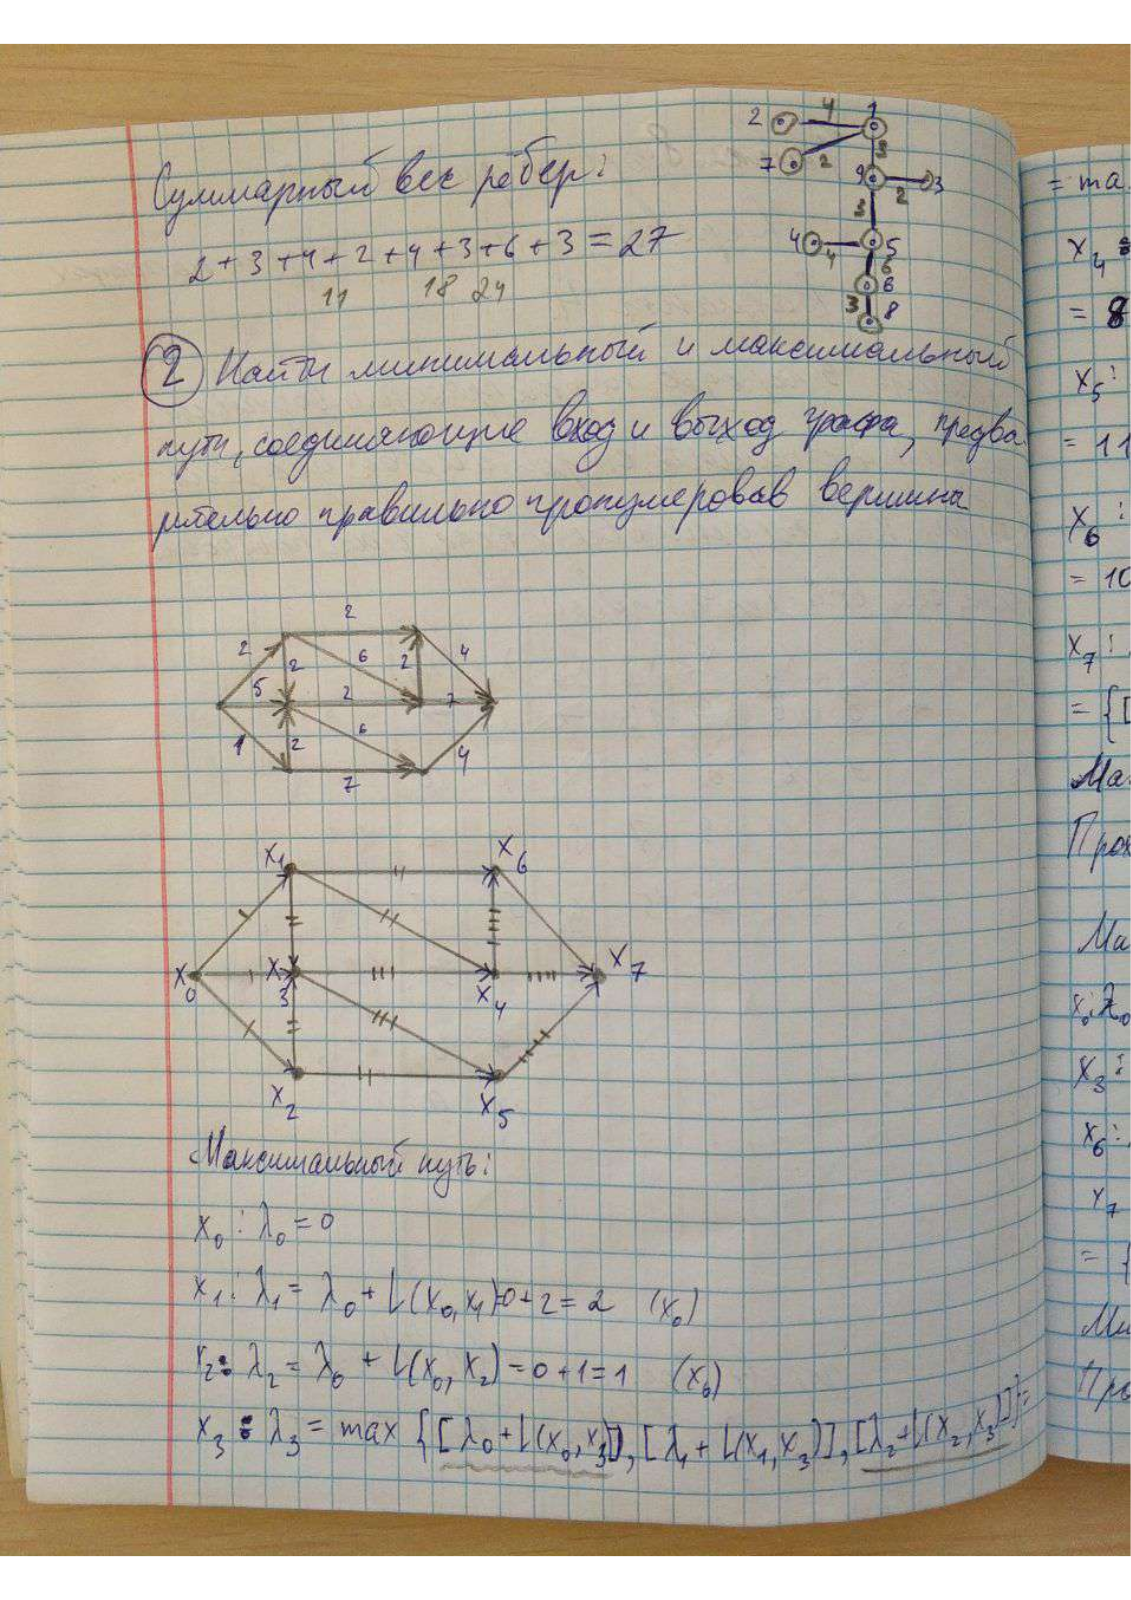 Суммарный вес рёбер:
2+3+4+2+4+3+6+3=27
11 18 24
2 4 1
7 2 3
9 2 3
3
4 4 5
6
6
3 8
2 Найти минимальный и максимальный
пути, соединяющие вход и выход графа, предва
рительно правильно пронумеровав вершины
2
2 2 6 2 4
5 2 7
1 2 6 4
7
x₁ x₆
x₀ x₃ x₄ x₇
x₂ x₅
Максимальный путь:
x₀: λ₀=0
x₁: λ₁= λ₀+L(x₀,x₁)=0+2=2 (x₀)
x₂: λ₂ = λ₀ + L(x₀,x₂)=0+1=1 (x₀)
x₃: λ₃ = max {[λ₀+L(x₀,x₃)],[λ₁+L(x₁,x₃)],[λ₂+L(x₂,x₃)]}=
= ma
x₄:
= 8
x₅:
= 11
x₆:
= 10
x₇:
= {[
Ма
Прох
Ми
x₀:λ₀
x₃:
x₆:
x₇
= {
Ми
Про